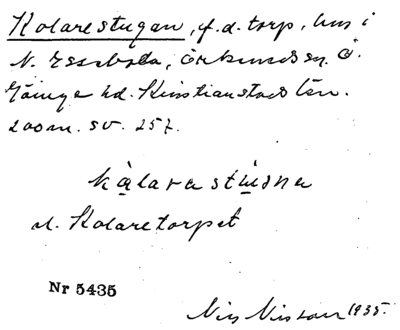 Kolarestugan, f.d. torp, hus i
N. Esseboda, Örkeneds sn. Ö.
Göinge hd. Kristianstads län.
200 m. sv. 257.
kàlarastúana
el. Kolaretorpet
Nr 5435
Nils Nilsson 1935.